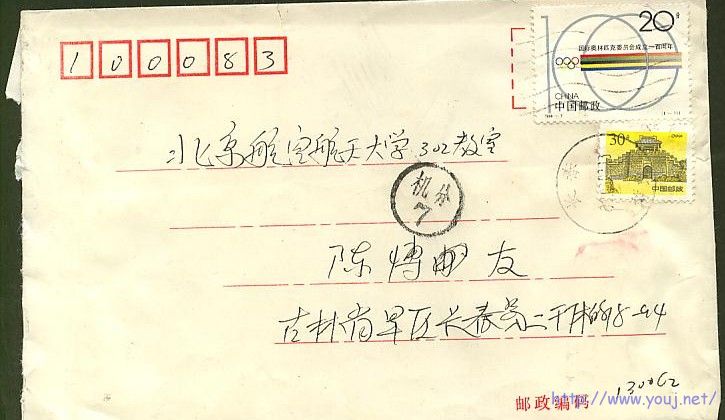 100083
20分
国际奥林匹克委员会成立一百周年
CHINA
中国邮政
北京航空航天大学302教室
30分
中国邮政
机分
7
陈博 友
吉林省 长春 二
邮政编码
http://www.youj.net/